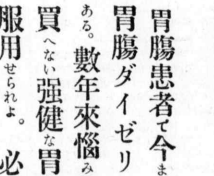 胃腸患者で今ま
胃腸ダイゼリ
ある。數年來惱み
買へない强健な胃
服用せられよ。必